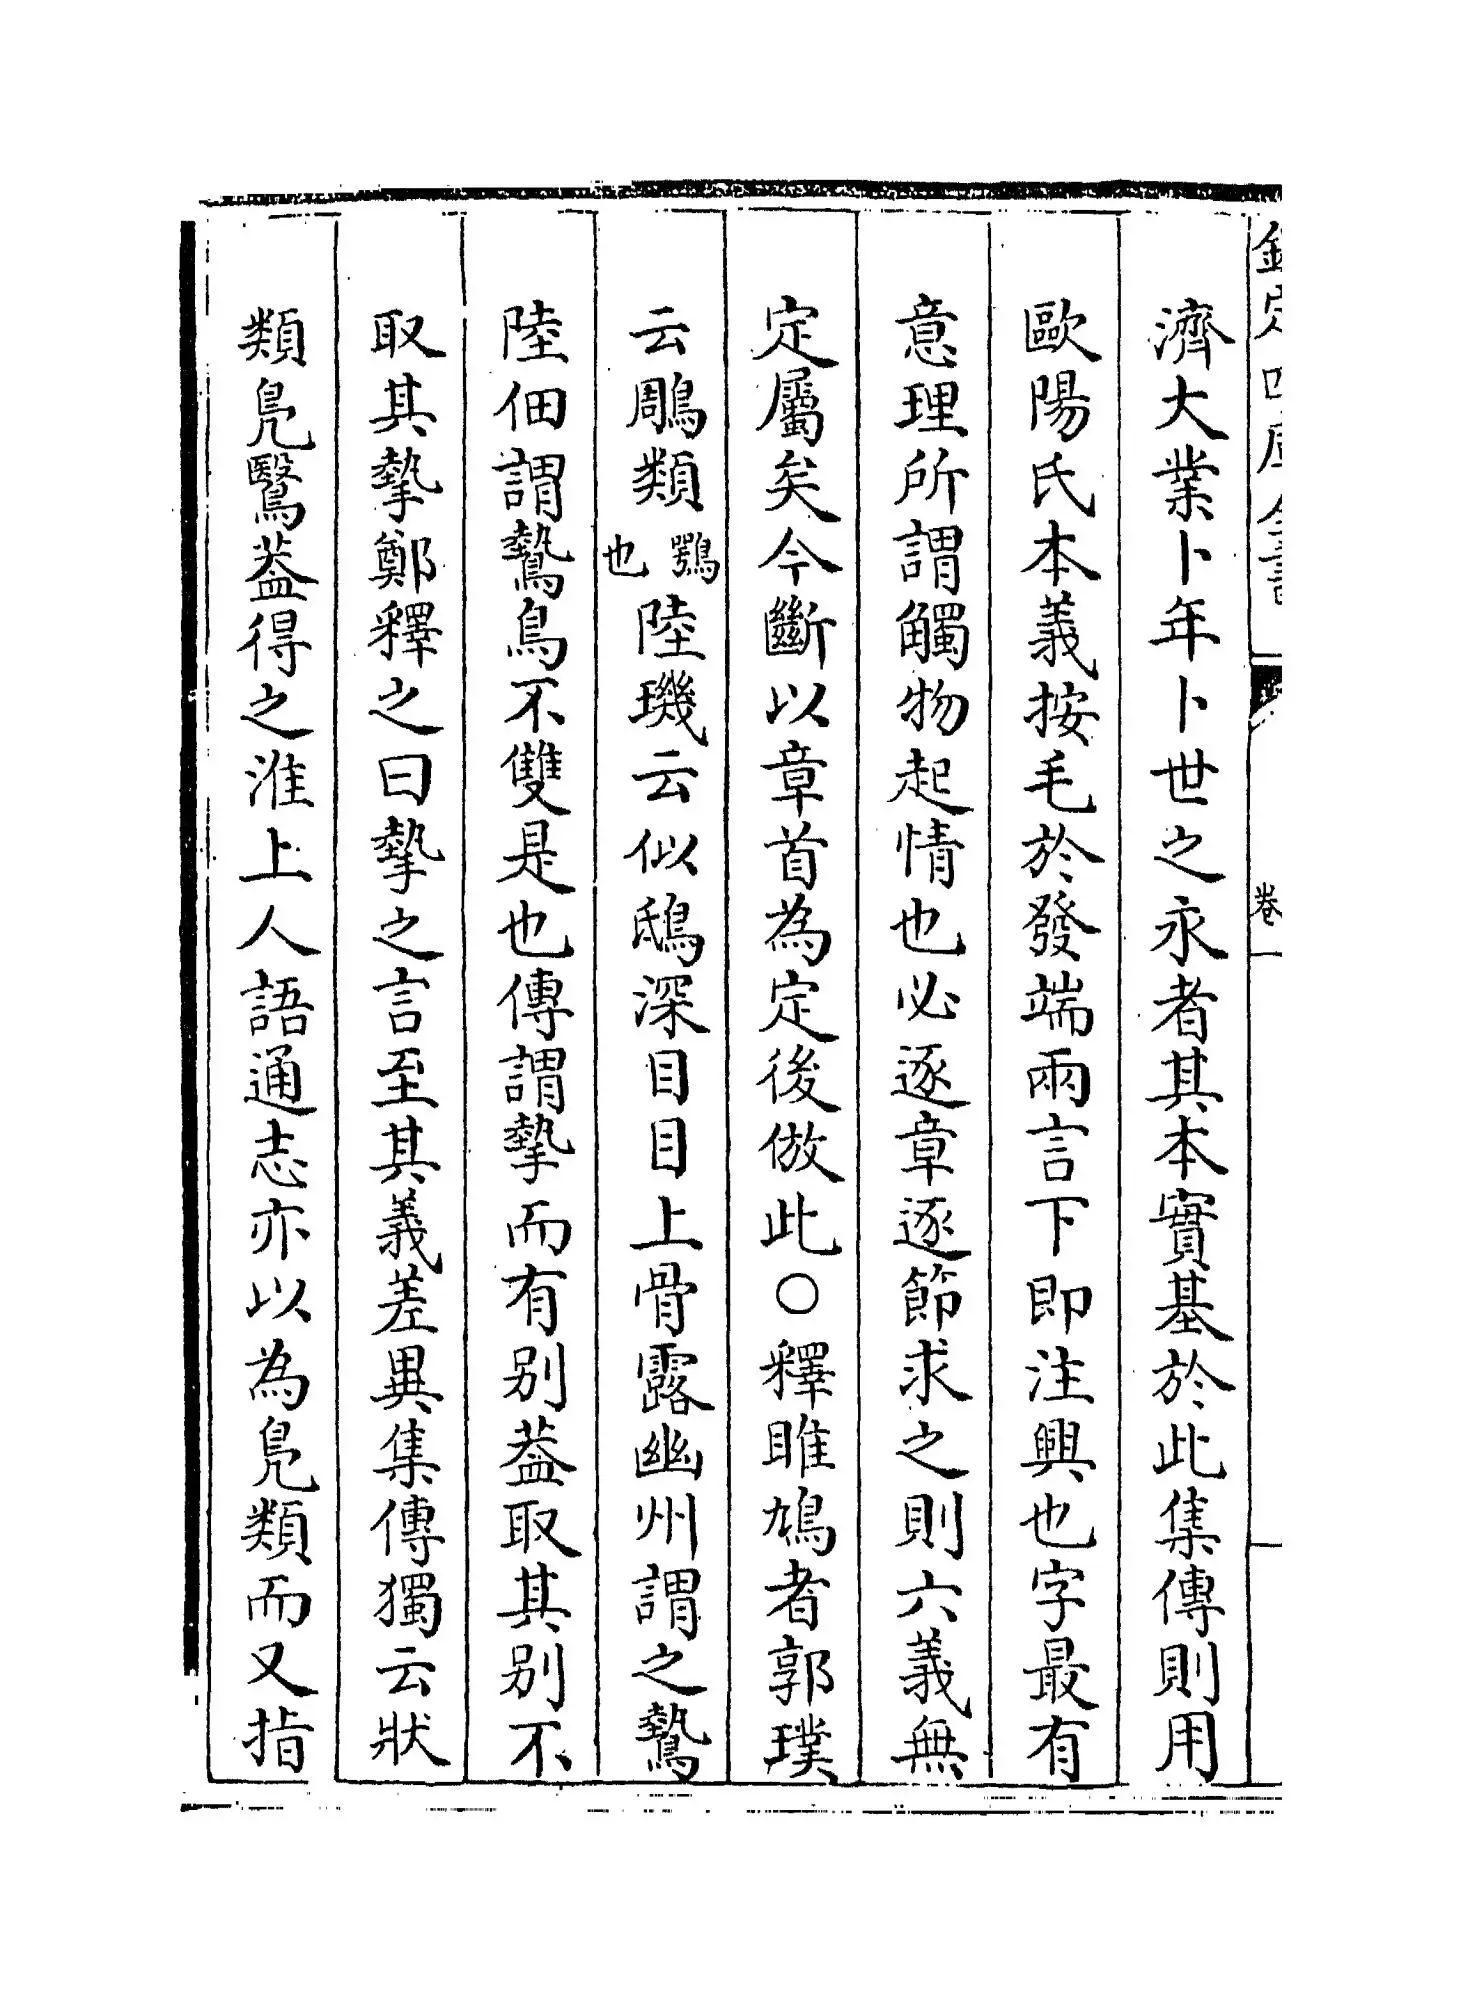 欽定四庫全書
卷一
濟大業卜年卜世之永者其本實基於此集傳則用
歐陽氏本義按毛於發端兩言下即注興也字最有
意理所謂觸物起情也必逐章逐節求之則六義無
定屬矣今斷以章首為定後倣此○釋雎鳩者郭璞
云鵰類鶚也陸璣云似鴟深目目上骨露幽州謂之鷙
陸佃謂鷙鳥不雙是也傳謂摯而有别葢取其别不
取其摯鄭釋之曰摯之言至其義差異集傳獨云狀
類鳧鷖葢得之淮上人語通志亦以為鳧類而又指